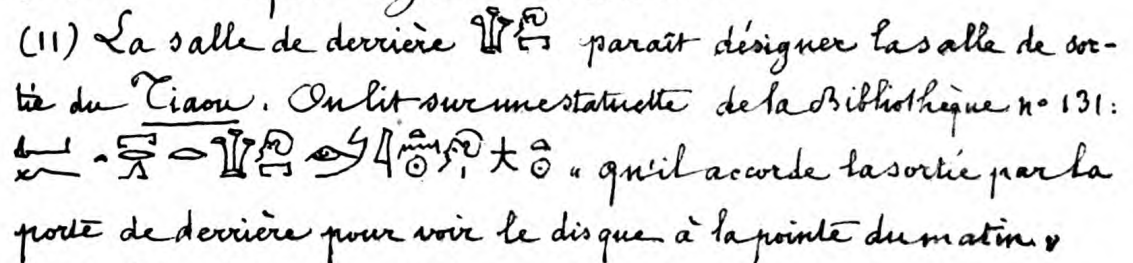 (11) La salle de derrière paraît désigner la salle de sor-
tie du Tiaou. On lit sur une statuette de la Bibliothèque nº 131:
" qu'il accorde la sortie par la
porte de derrière pour voir le disque à la pointe du matin "